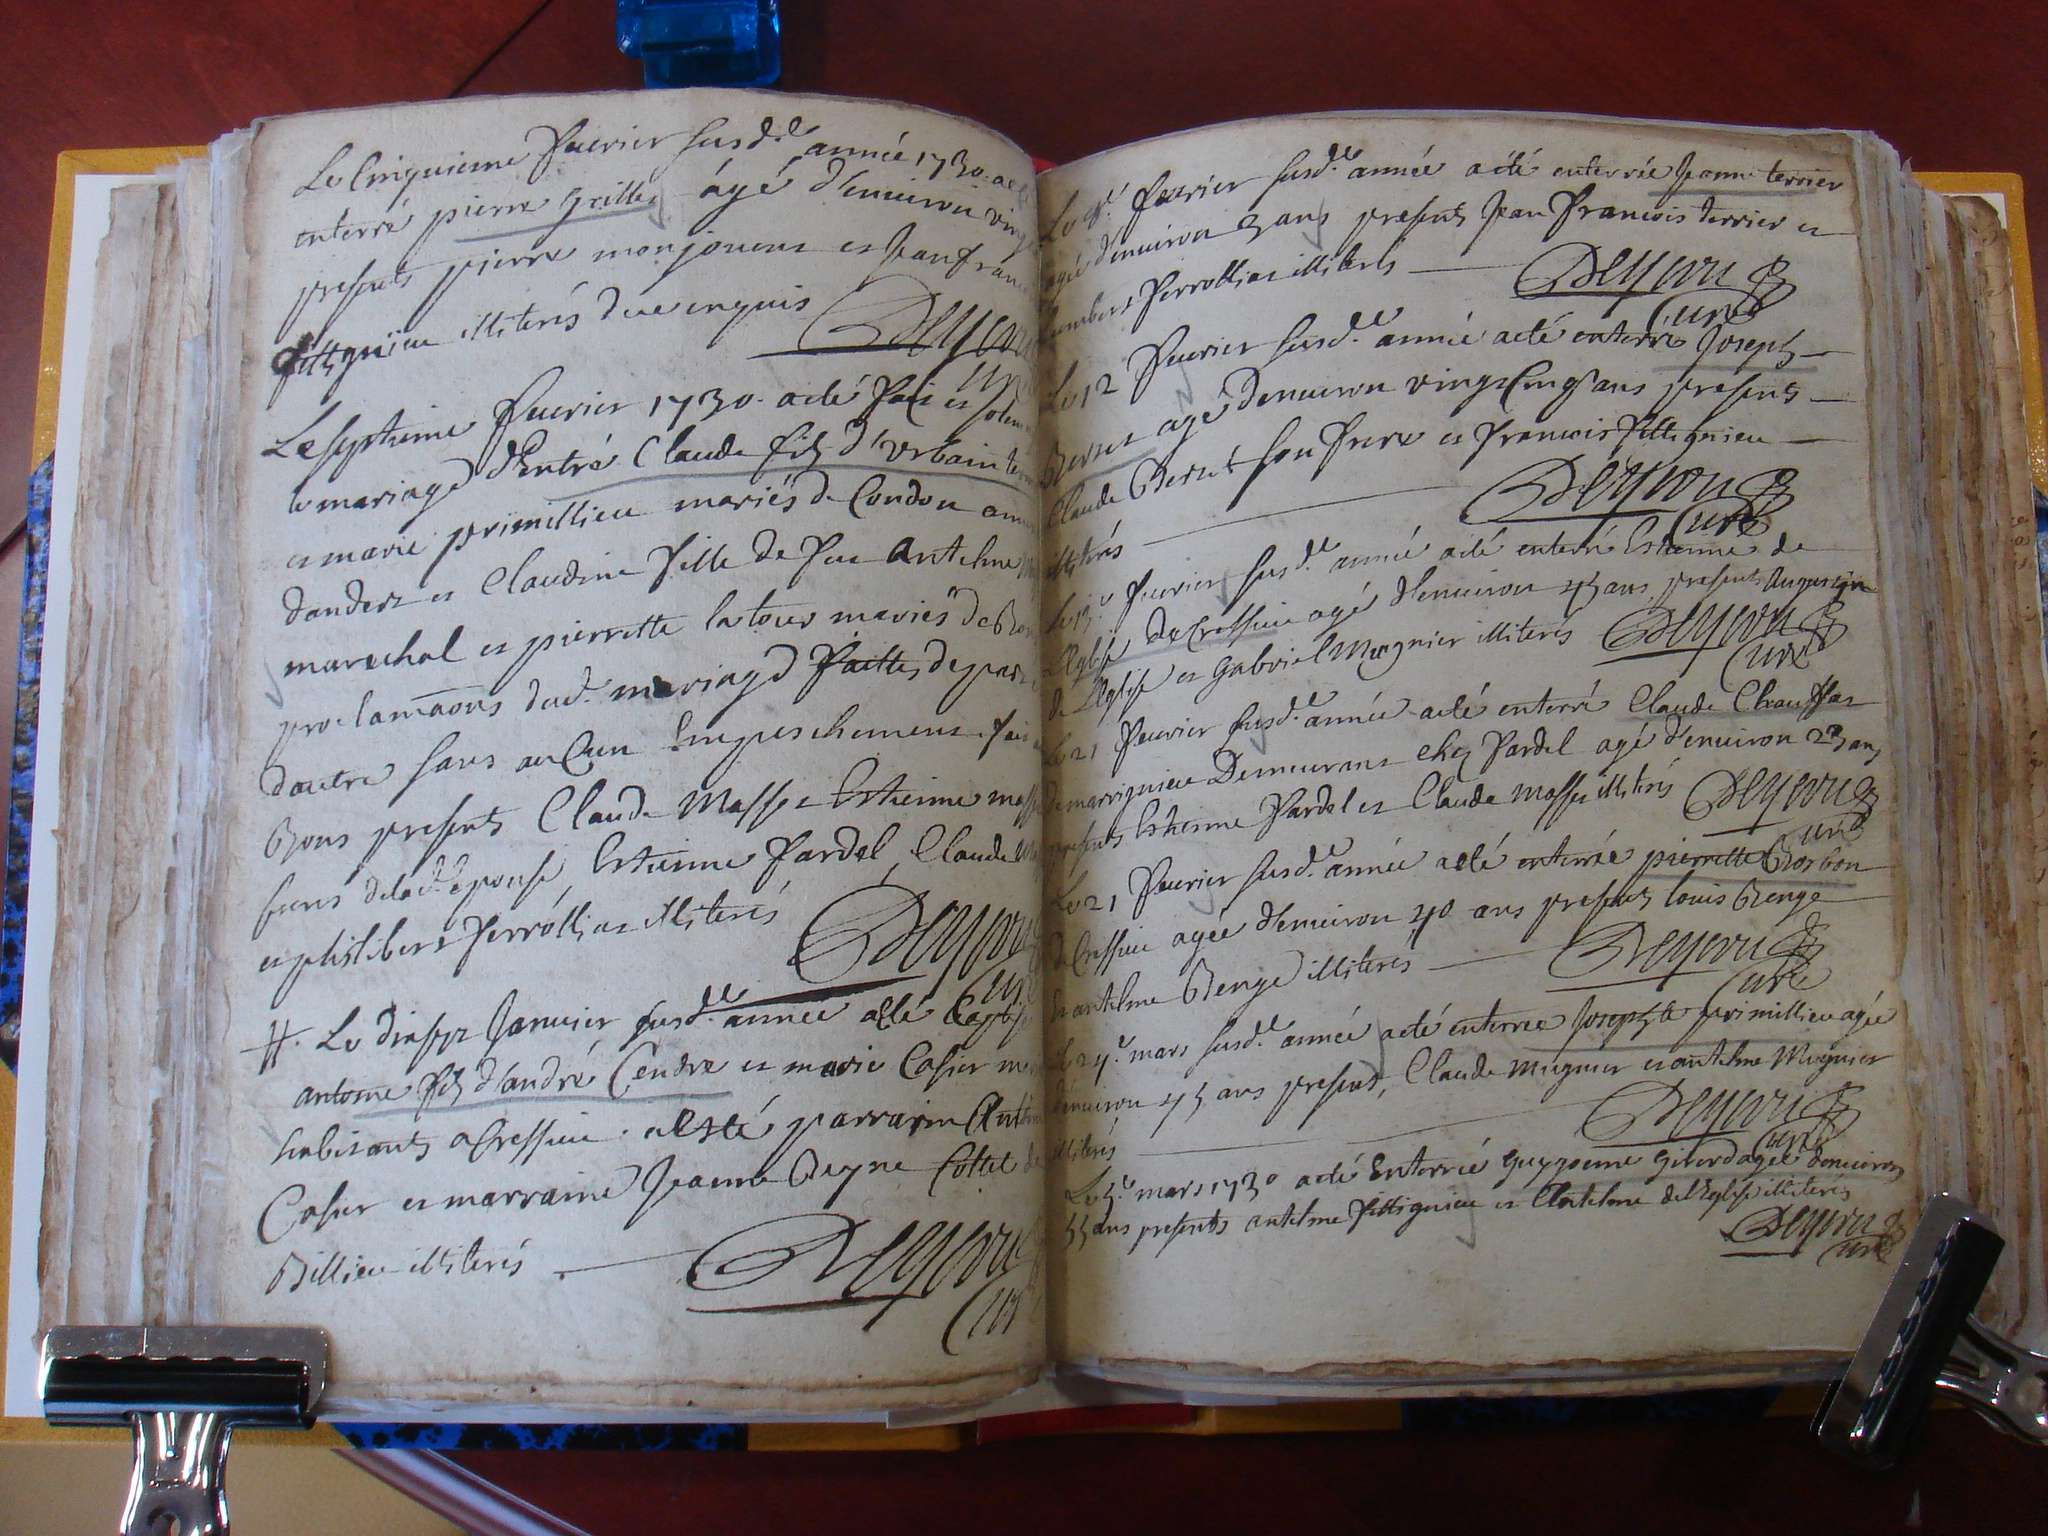 Le Cinquieme feurier susd.e année 1730. a esté
enterré pierre grillet agé d'enuiron vingt
presents pierre monjoueux et Jean fran
pittignieu illiterés de ce enquis
Deyeou
Curé
Le septieme feurier 1730. a esté fait et solem
le mariage d'Entre Claude fils d'urbain
et marie primillieu mariés de Condon
d'andert et Claudine fille de feu antelme
marechal et pierrette latour mariés de
proclamaons dud. mariage faittes de part
dautre sans aucun Empeschement
Bons presents Claude Masse et Estienne masse
de la d. epouse Estienne Pardel, Claude
et philibert Perrollier illiterés
Deyeou
Curé
#. Le dix sept Januier susd.e année a esté baptisé
antoine fils d'andré Cendre et marie Casier
habitants a Cressieu. a esté parrain
Casier et marraine Jeanne Beyne Cottet de
Billieu illiterés
Deyeou
Curé
Le 9.e feurier susd.e année a été enterrée Jeanne terrier
agée d'enuiron 3 ans presents Jean Francois terrier et
humbert Perrollier illiterés
Deyeou
Curé
Le 12 feurier susd.e année a été enterré Joseph
Bernet agé d'enuiron vingt Cinq ans presents
Claude Bernet son frere et Francois Pittignieu
illiterés
Deyeou
Curé
Le 13.e feurier susd.e année a été enterré Estienne de
L'Eglise de Cressieu agé d'enuiron 45 ans, presents
de L'Eglise et gabriel Mugnier illiterés Deyeou
Curé
Le 21 feurier susd.e année a été enterré Claude Chauffat
de marrignieu Demeurant chez Pardel agé d'enuiron 23 ans
presents Estienne Pardel et Claude Masse illiterés Deyeou
Curé
Le 21 feurier susd.e année a été enterrée pierrette Borbon
de Cressieu agée d'enuiron 40 ans presents louis Benge
et antelme Benge illiterés
Deyeou
Curé
Le 24.e mars susd.e année a été enterrée Josephte primillieu agée
d'enuiron 45 ans presents, Claude mugnier et antelme Mugnier
illiterés
Deyeou
Curé
Le 5.e mars 1730 a été Enterrée guygonne girerd agée d'enuiron
55 ans presents antelme Pittignieu et Antelme de l'Eglise illiterés
Deyeou
Curé